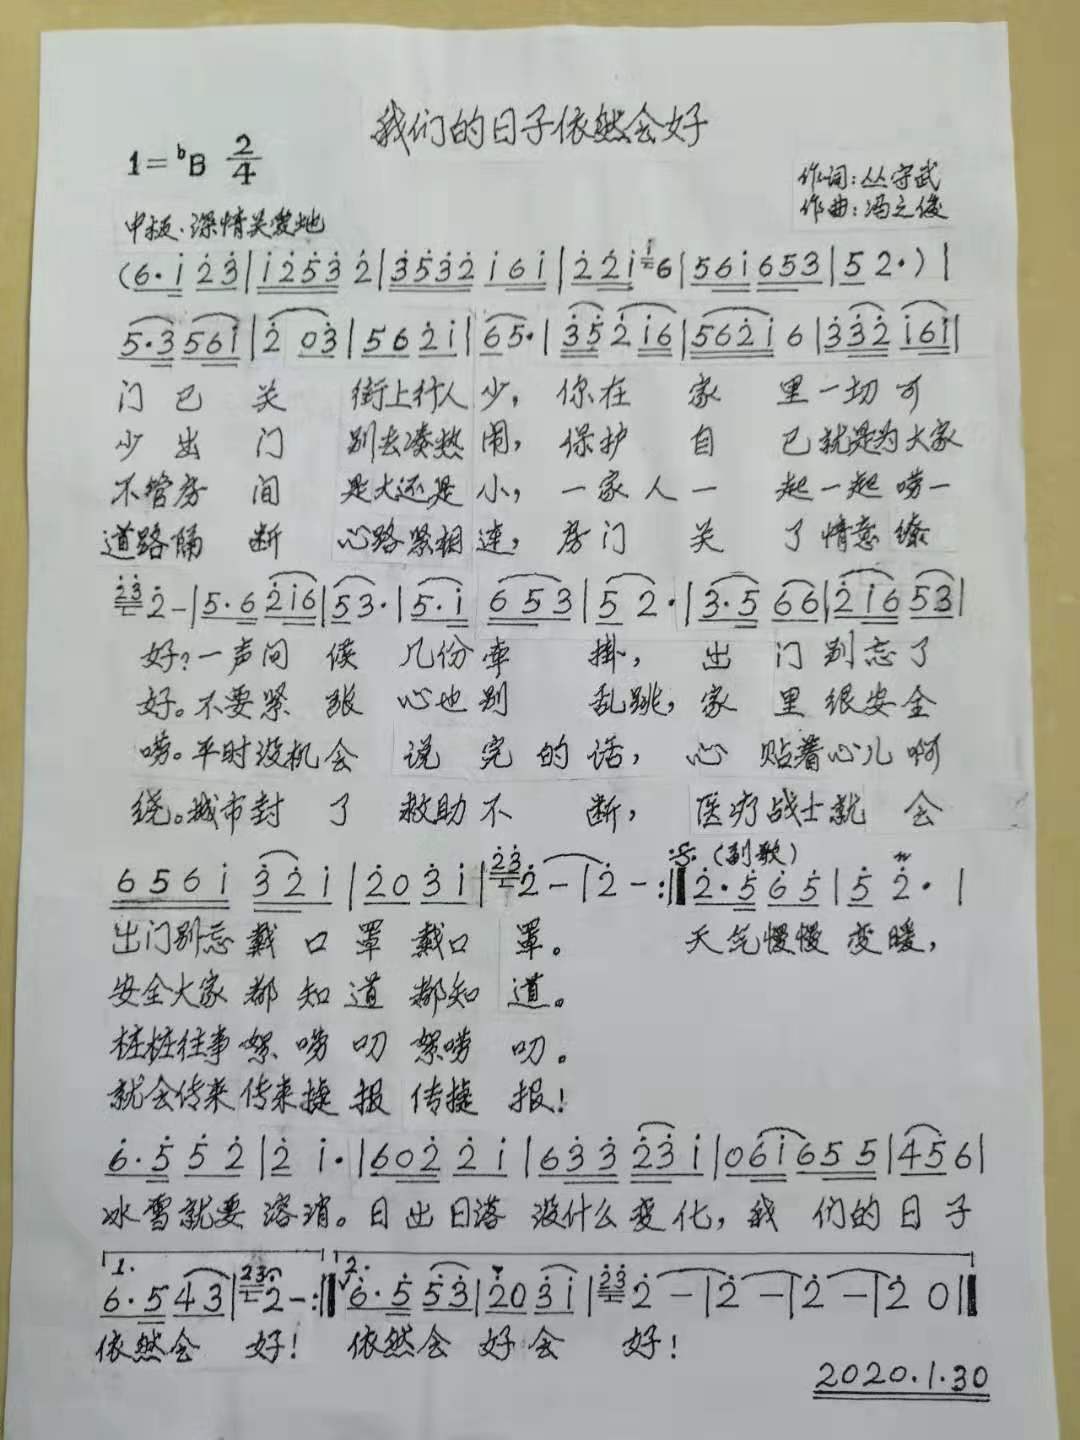 我们的日子依然会好
1=♭B 2/4
作词:丛守武
作曲:冯之俊
中板·深情关爱地
(6·i 23|i253 2|3532 i6i|22i i6|56i653|52·)|
5·3 56i|2 03|562i|65·|352i6|562i6|332 i6i|
门已关 街上行人少，你在家里一切可
少出门 别去凑热闹，保护自己就是为大家
不管房间 是大还是小，一家人一起一起唠一
道路隔断 心路紧相连，房门关了情意缭
23 2-|5·62i6|53·|5·i 653|52·|3·566|2i653|
好?一声问候 几份牵掛，出门别忘了
好。不要紧张 心也别乱跳，家里很安全
唠。平时没机会 说完的话，心贴着心儿啊
绕。城市封了 救助不断，医疗战士就会
656i 32i|203i|23 2-|2-:‖2·565|52·|
(副歌)
出门别忘戴口罩戴口罩。 天气慢慢变暖，
安全大家都知道都知道。
桩桩往事絮唠叨絮唠叨。
就会传来传来捷报传捷报!
6·552|2i·|6022i|63323i|06i655|456|
冰雪就要溶消。日出日落没什么变化，我们的日子
1. 2.
6·543|23 2-:‖6·553|203i|23 2-|2-|2-|20‖
依然会好! 依然会好会好!
2020.1.30